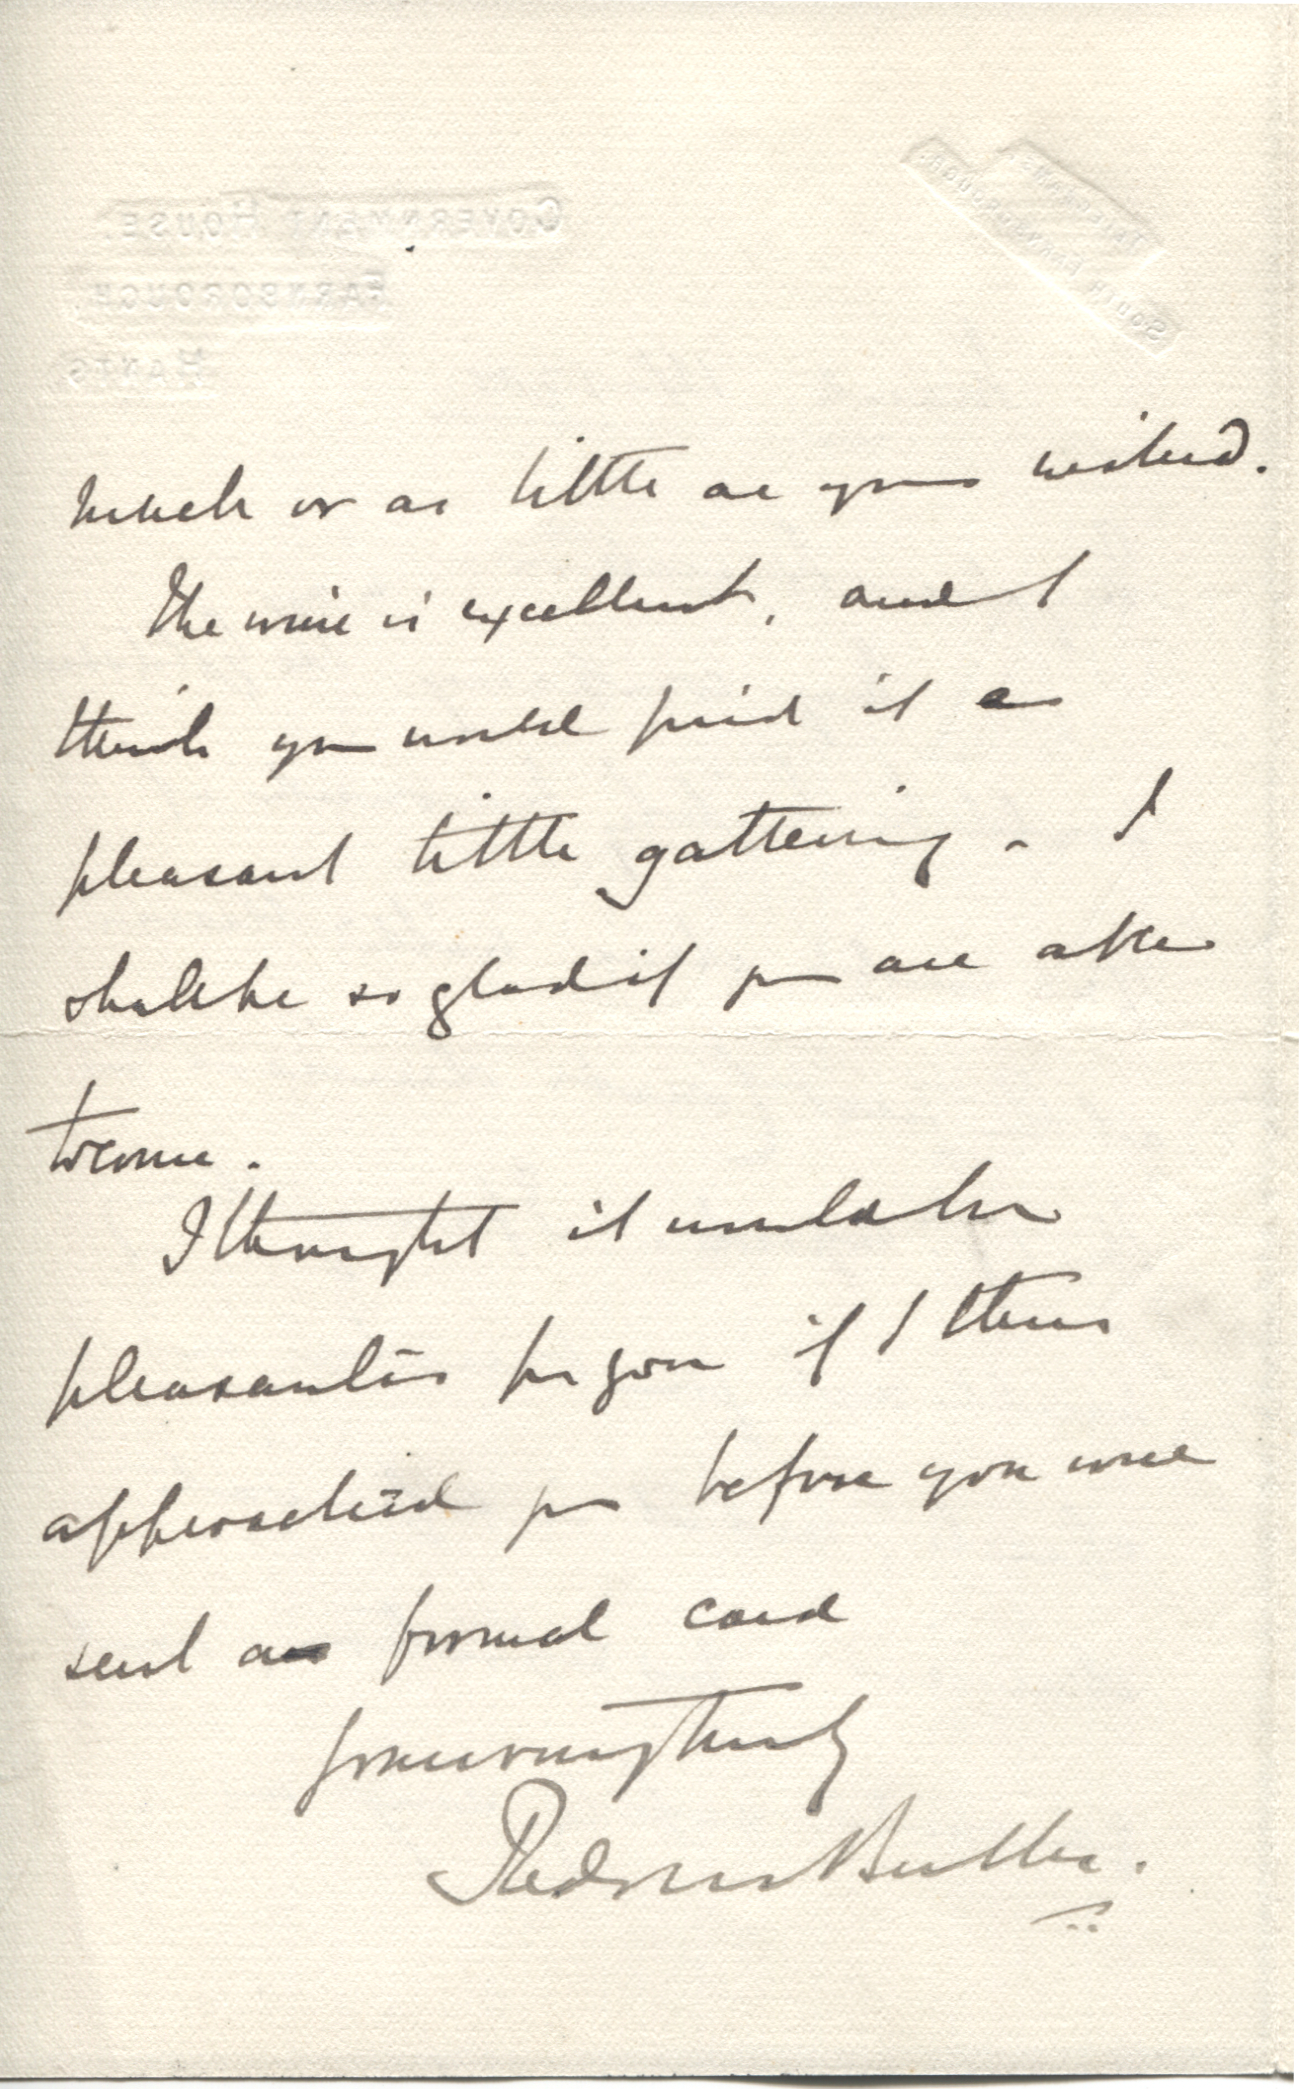 GOVERNMENT HOUSE.
FARNBOROUGH.
HANTS
TELEGRAMS.
SOUTH FARNBOROUGH.
much or as little as you wished.
The wine is excellent, and I
think you would find it a
pleasant little gathering. I
shall be so glad if you are able
to come.
I thought it would be
pleasanter for you if I thus
approached you before you were
sent a formal card
Yours very truly
Redvers Buller.